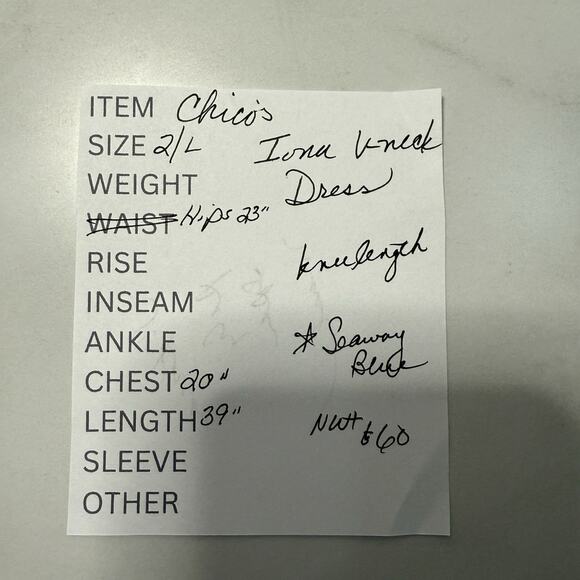 ITEM Chico's
SIZE 2/L Iona V-neck
WEIGHT Dress
WAIST Hips 23"
RISE kneelength
INSEAM
ANKLE * Seaway
CHEST 20" Blue
LENGTH 39" NWT $60
SLEEVE
OTHER